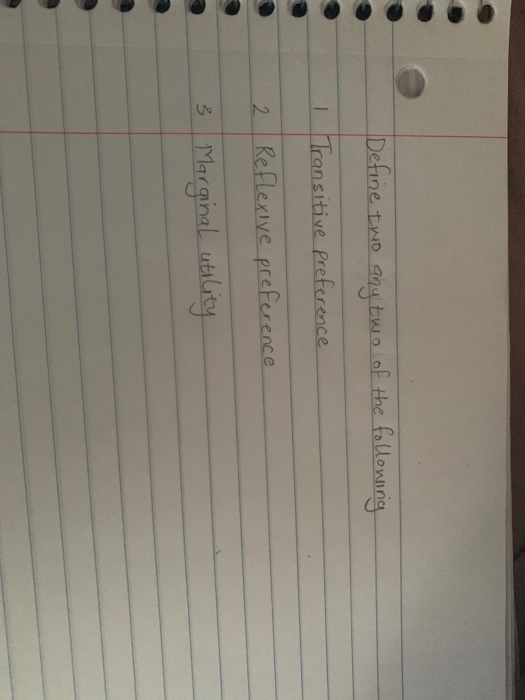 Define two any two of the following
1 Transitive preference
2 Reflexive preference
3 Marginal utility